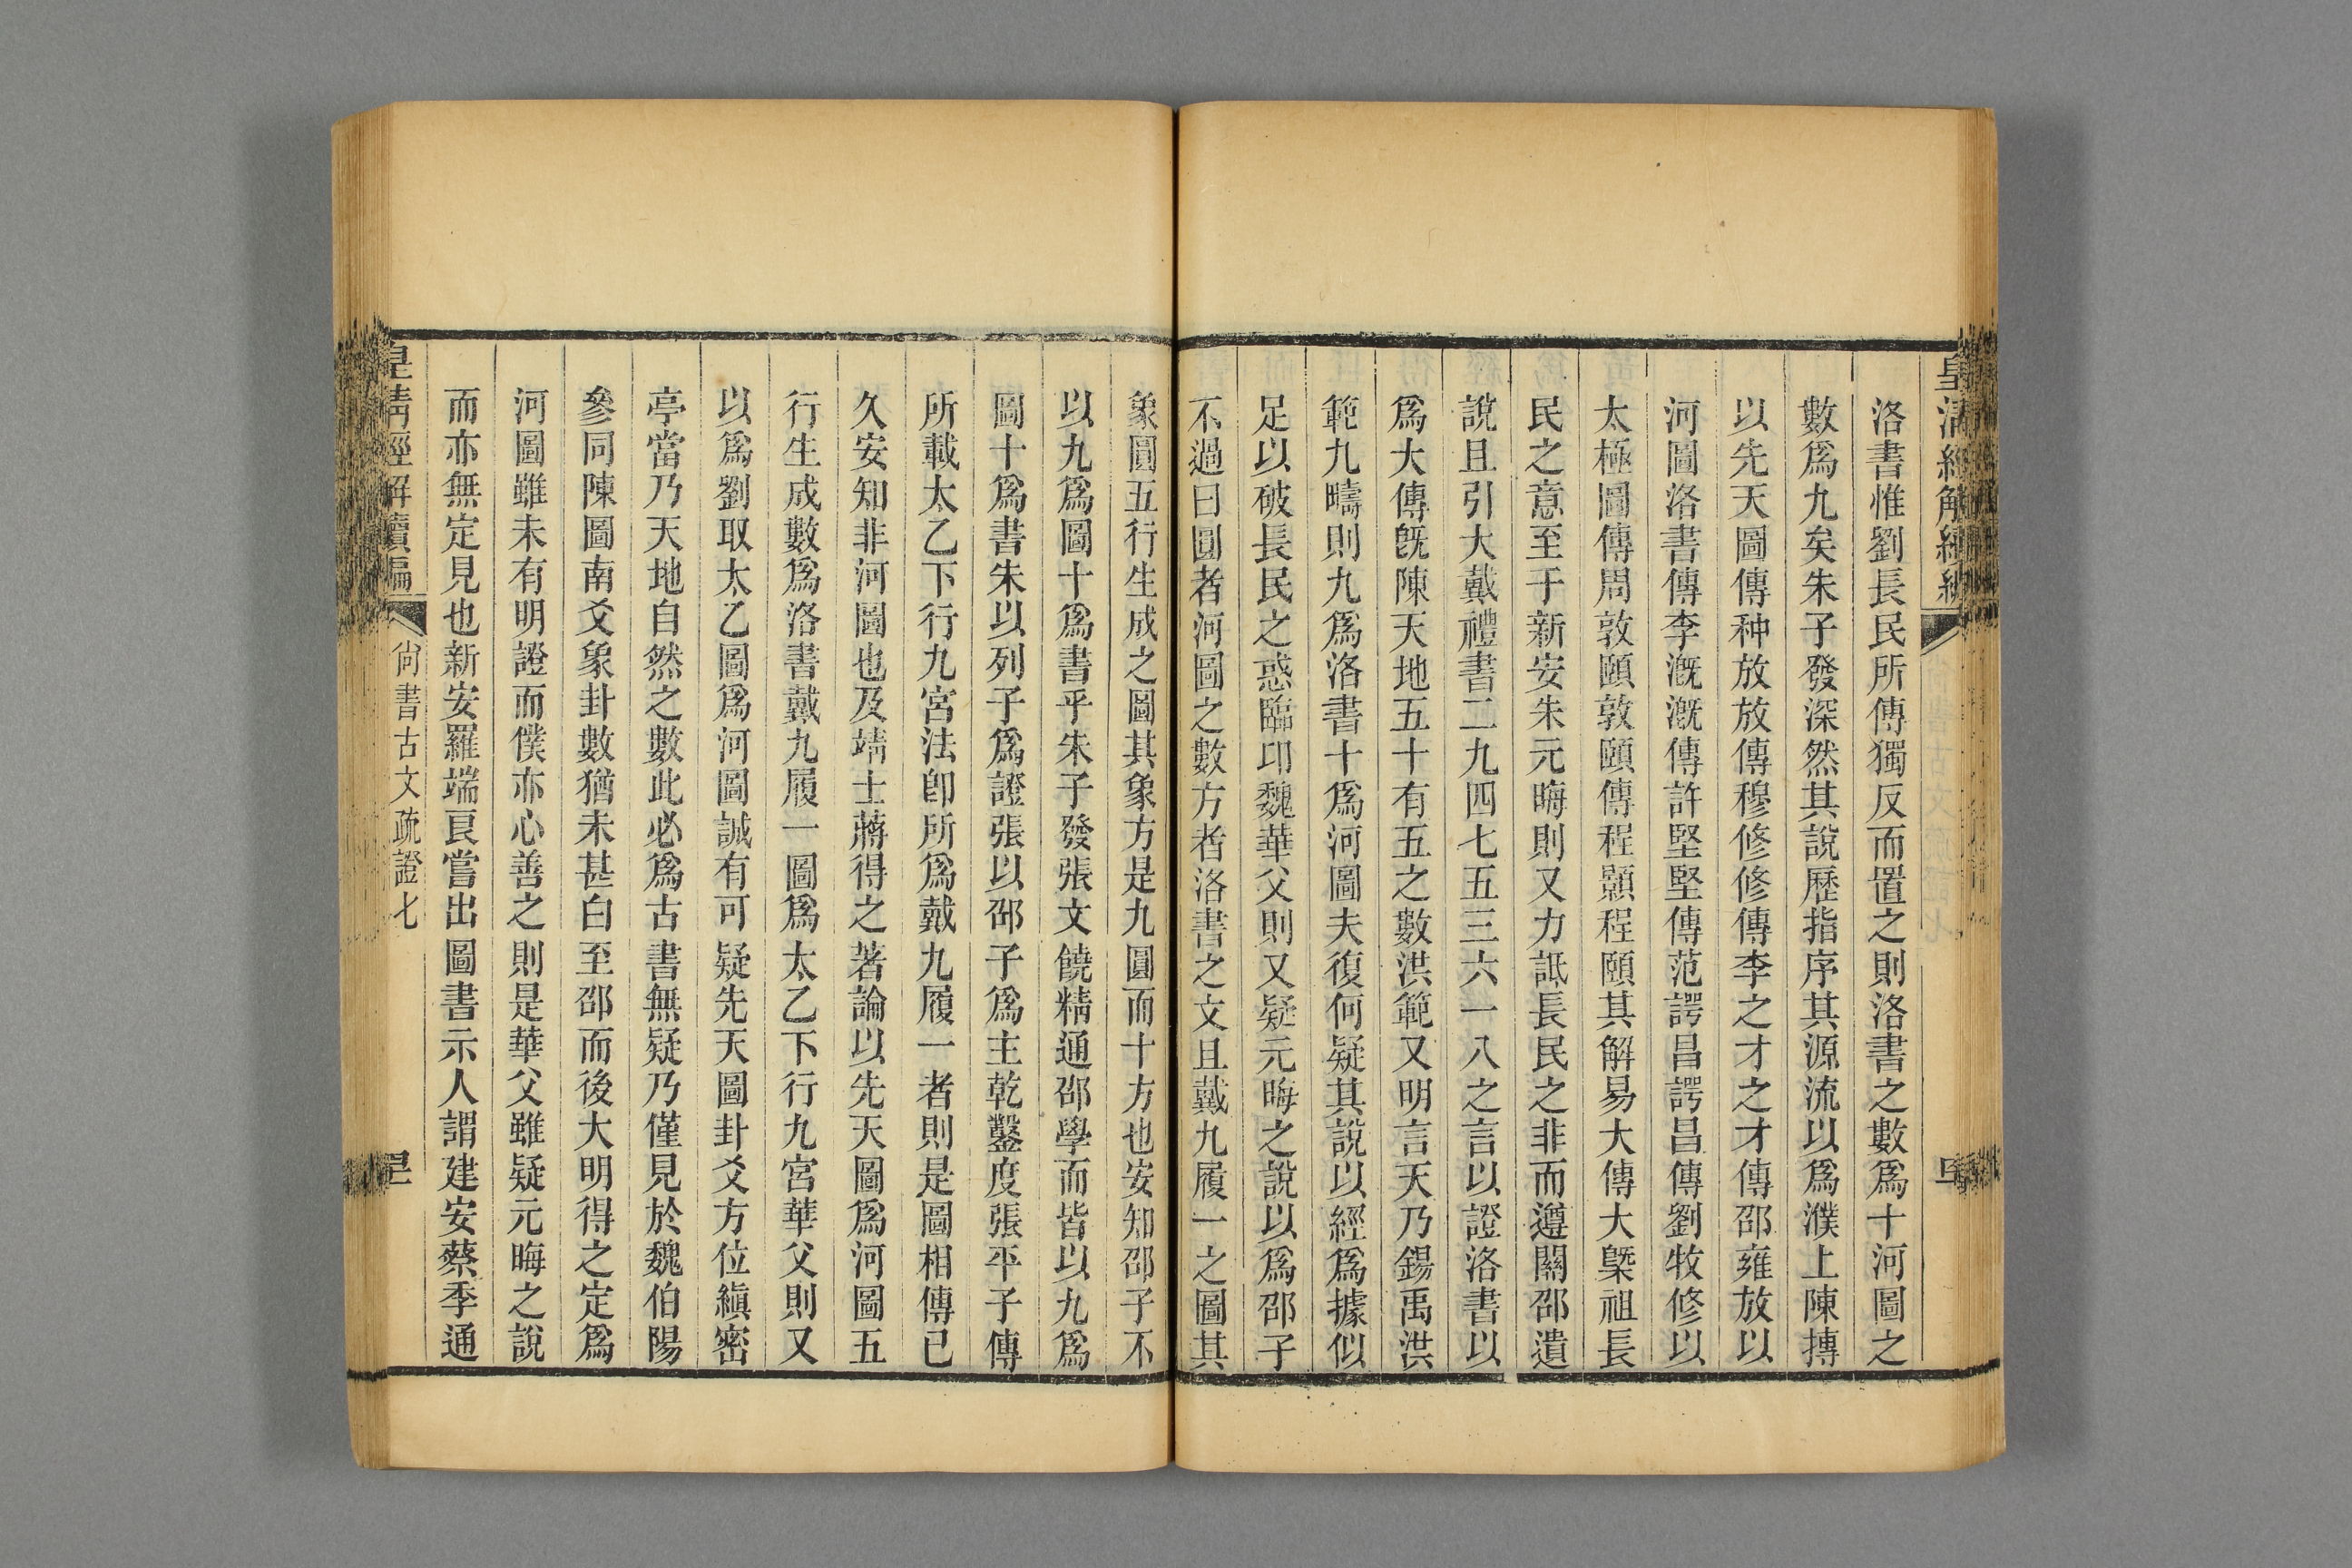 皇清經解續編
洛書惟劉長民所傳獨反而置之則洛書之數爲十河圖之
數爲九矣朱子發深然其說歷指序其源流以爲濮上陳摶
以先天圖傳种放放傳穆修修傳李之才之才傳邵雍放以
河圖洛書傳李漑漑傳許堅堅傳范諤昌諤昌傳劉牧修以
太極圖傳周敦頤敦頤傳程顥程頤其解易大傳大槩祖長
民之意至于新安朱元晦則又力詆長民之非而遵關邵遺
說且引大戴禮書二九四七五三六一八之言以證洛書以
爲大傳旣陳天地五十有五之數洪範又明言天乃錫禹洪
範九疇則九爲洛書十爲河圖夫復何疑其說以經爲據似
足以破長民之惑臨卭魏華父則又疑元晦之說以爲邵子
不過曰圓者河圖之數方者洛書之文且戴九履一之圖其
象圓五行生成之圖其象方是九圓而十方也安知邵子不
以九爲圖十爲書乎朱子發張文饒精通邵學而皆以九爲
圖十爲書朱以列子爲證張以邵子爲主乾鑿度張平子傳
所載太乙下行九宮法卽所爲戴九履一者則是圖相傳已
久安知非河圖也及靖士蔣得之著論以先天圖爲河圖五
行生成數爲洛書戴九履一圖爲太乙下行九宮華父則又
以爲劉取太乙圖爲河圖誠有可疑先天圖卦爻方位縝密
亭當乃天地自然之數此必爲古書無疑乃僅見於魏伯陽
參同陳圖南爻象卦數猶未甚白至邵而後大明得之定爲
河圖雖未有明證而僕亦心善之則是華父雖疑元晦之說
而亦無定見也新安羅端良嘗出圖書示人謂建安蔡季通
皇清經解續編
尙書古文疏證七